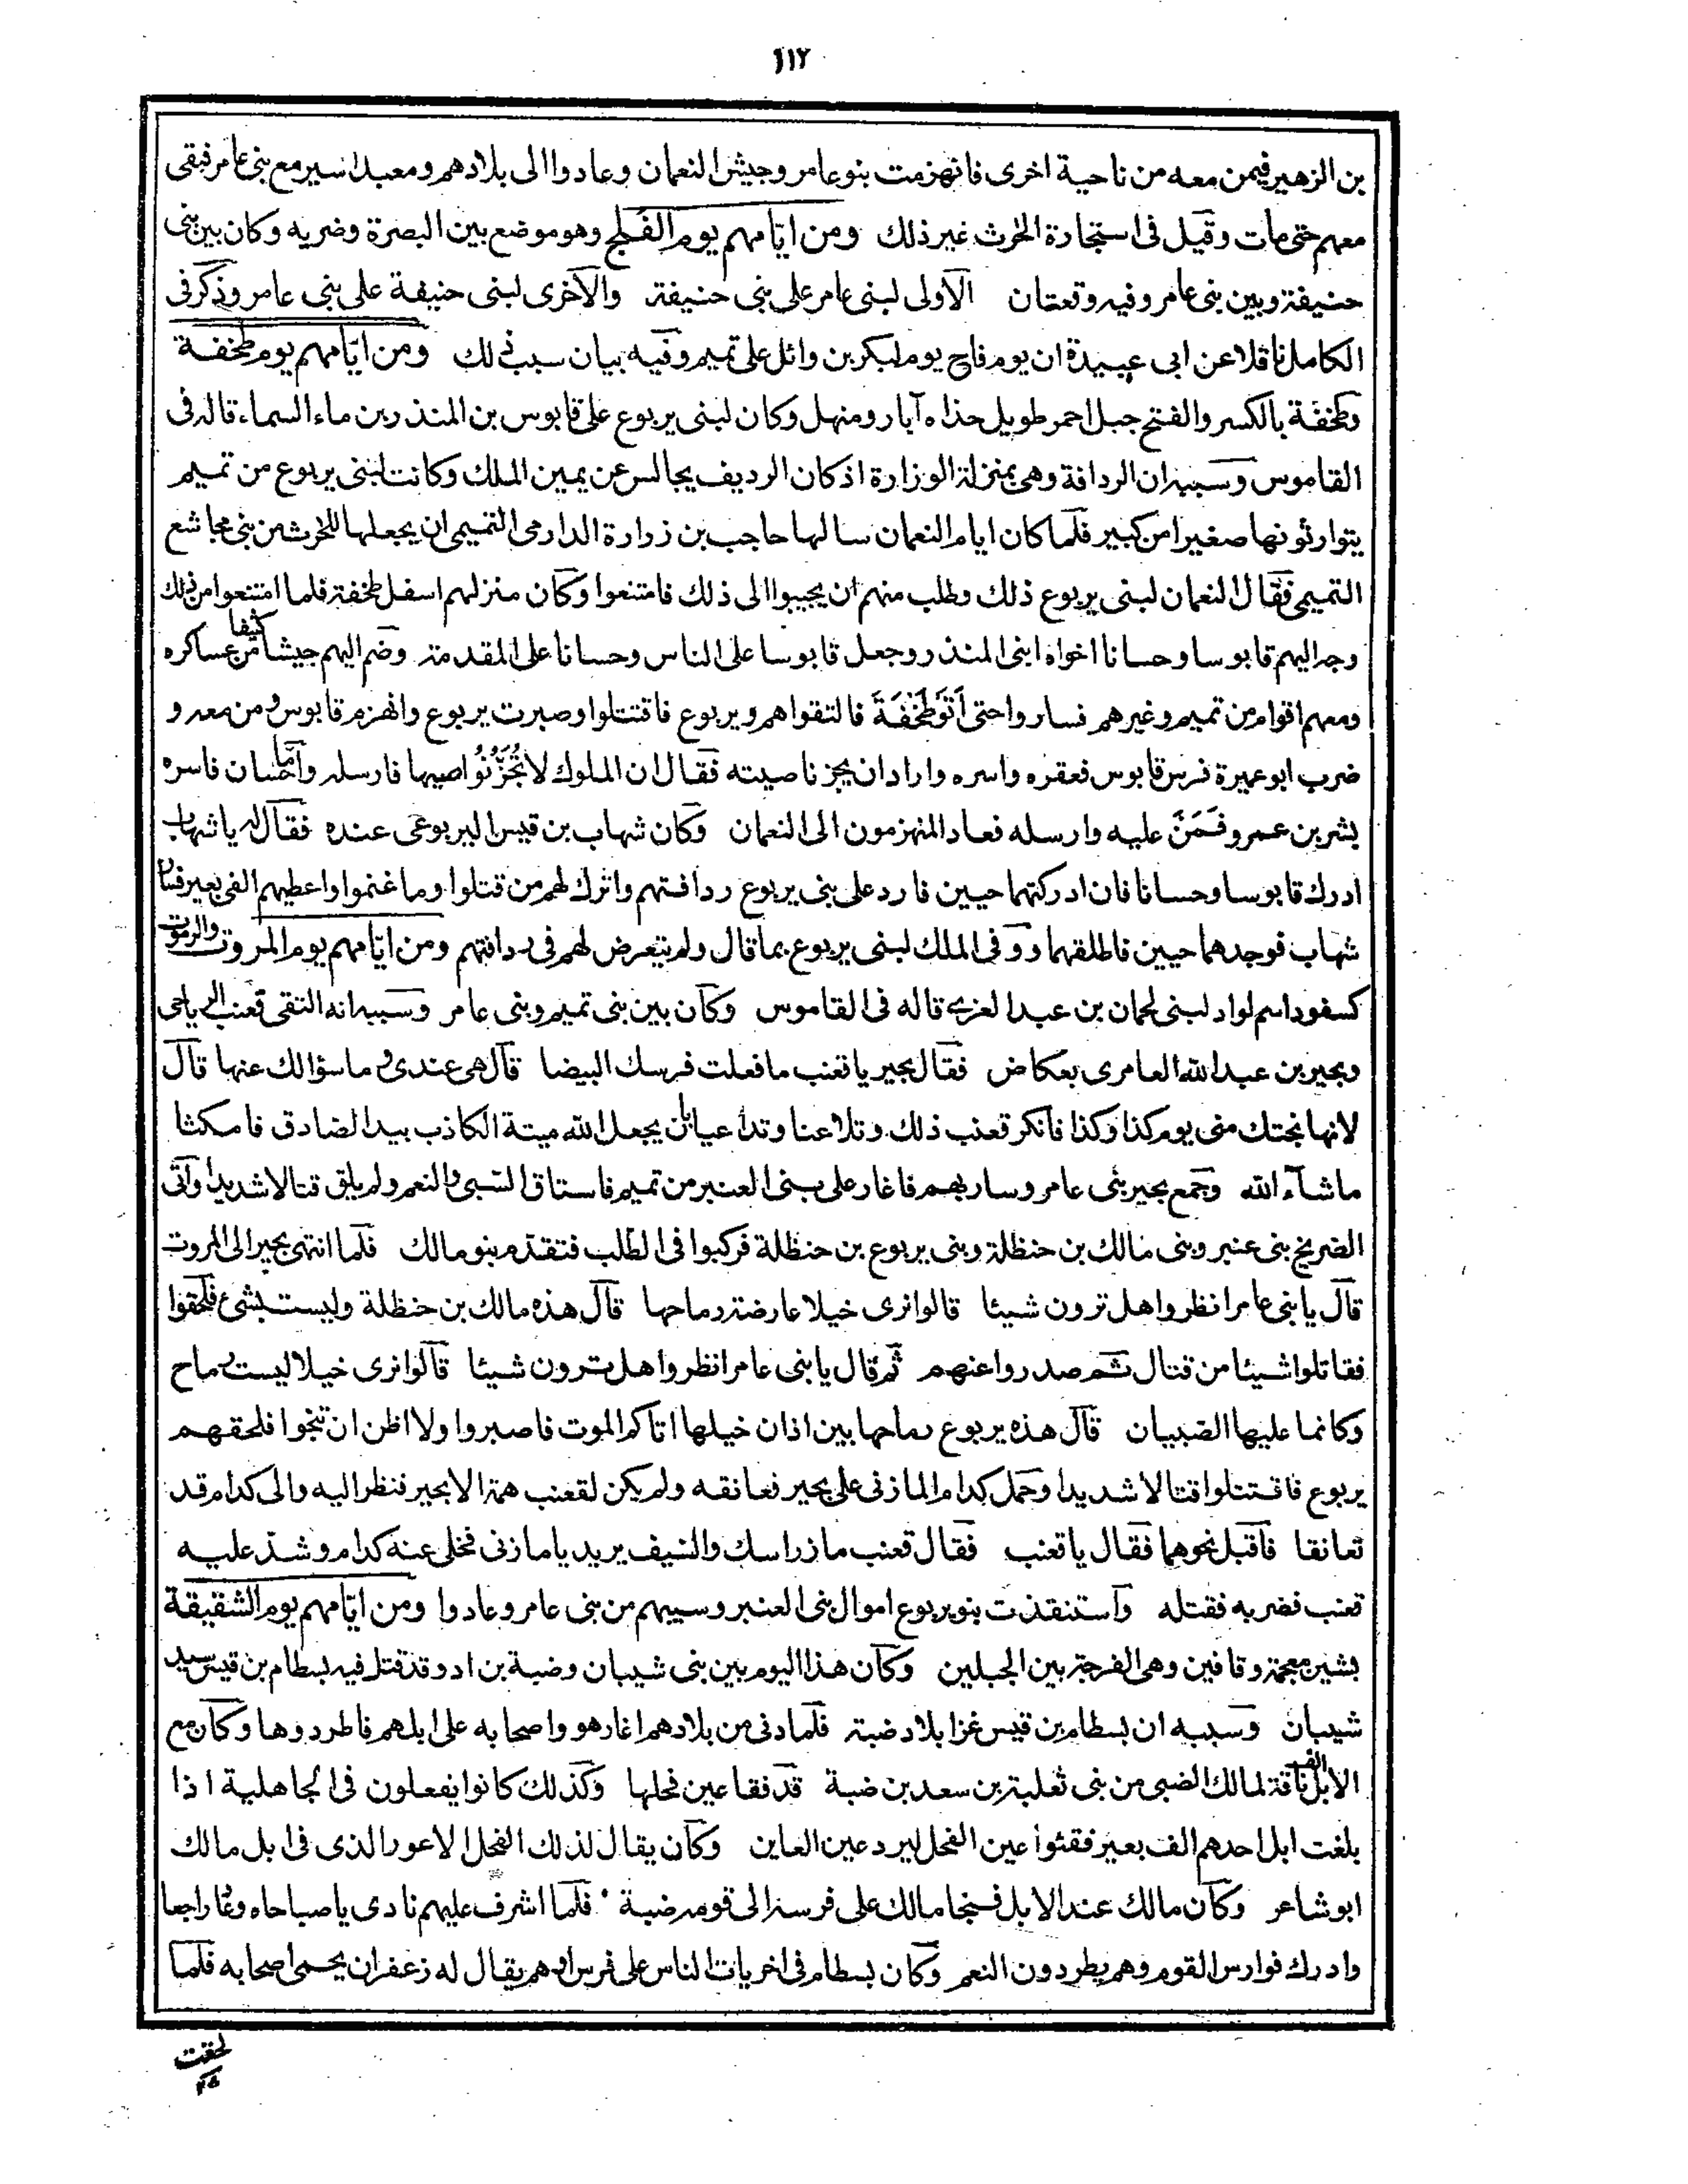 ١١٢
بن الزهير فيمن معه من ناحية اخرى فانهزمت بنو عامر وجيش النعمان وعادوا الى بلادهم ومعبد اسير مع بنى عامر فبقى
معهم حتى مات وقيل فى استجارة الحرث غير ذلك ومن ايّامهم يوم الفلج وهو موضع بين البصرة وضريه وكان بين بنى
حنيفة وبين بنى عامر وفيه وقعتان الاولى لبنى عامر على بنى حنيفة والاخرى لبنى حنيفة على بنى عامر وذكر فى
الكامل ناقلا عن ابى عبيدة ان يوم فلج يوم لبكر بن وائل على تميم وفيه بيان سبب ذلك ومن ايّامهم يوم طخفة
وطخفة بالكسر والفتح جبل احمر طويل حذاه آبار ومنهل وكان لبنى يربوع على قابوس بن المنذر بن ماء السماء قاله فى
القاموس وسببه ان الردافة وهى بمنزلة الوزارة اذ كان الرديف يجالس عن يمين الملك وكانت لبنى يربوع من تميم
يتوارثونها صغيرا من كبير فلما كان ايام النعمان سالها حاجب بن زرارة الدارمى التميمى ان يجعلها للحرث من بنى مجاشع
التميمى فقال النعمان لبنى يربوع ذلك وطلب منهم ان يجيبوا الى ذلك فامتنعوا وكان منزلهم اسفل طخفة فلما امتنعوا من ذلك
وجه اليهم قابوسا وحسانا اخواه ابنى المنذر وجعل قابوسا على الناس وحسانا على المقدمة وضم اليهم جيشا كثيفا من عساكره
ومعهم اقوام من تميم وغيرهم فساروا حتى اَتَوْ طَخْفَةَ فالتقوا هم ويربوع فاقتتلوا وصبرت يربوع وانهزم قابوس ومن معه و
ضرب ابو عميرة فرس قابوس فعقره واسره واراد ان يجز ناصيته فقال ان الملوك لا تُجَزُّ نواصيها فارسله وامّا حسان فاسره
بشر بن عمرو فَمَنَّ عليه وارسله فعاد المنهزمون الى النعمان وكان شهاب بن قيس اليربوعى عنده فقال له يا شهاب
ادرك قابوسا وحسانا فان ادركتهما حيين فارد على بنى يربوع ردافتهم واترك لهم من قتلوا وما غنموا واعطيهم الفى بعير فسار
شهاب فوجدهما حيين فاطلقهما ووفى الملك لبنى يربوع بما قال ولم يتعرض لهم فى ردافتهم ومن ايّامهم يوم المروت والمروت
كسفود اسم لواد لبنى لحمان بن عبد العزى قاله فى القاموس وكان بين بنى تميم وبنى عامر وسببه انه التقى قعنب الرياحى
وبحير بن عبد الله العامرى بعكاض فقال بحير يا قعنب ما فعلت فرسك البيضا قال هى عندى وما سؤالك عنها قال
لانها نجتك منى يوم كذا وكذا فانكر قعنب ذلك وتلاعنا وتداعيا بان يجعل الله ميتة الكاذب بيد الصادق فامكثا
ما شآء الله وجمع بحير بنى عامر وسار بهم فاغار على بنى العنبر من تميم فاستاق السبى والنعم ولم يلق قتالا شديدا واتى
الضريخ بنى عنبر وبنى مالك بن حنظلة وبنى يربوع بن حنظلة فركبوا فى الطلب فتقدّم بنو مالك فلما انتهى بحير الى المروت
قال يا بنى عامر انظروا هل ترون شيئا قالوا نرى خيلا عارضة رماحها قال هذه مالك بن حنظلة وليست بشئ فلحقوا
فقاتلوا شيئا من قتال ثم صدروا عنهم ثم قال يا بنى عامر انظروا هل ترون شيئا قالوا نرى خيلا ليست رماح
وكانما عليها الصبيان قال هذه يربوع رماحها بين اذان خيلها اتاكم الموت فاصبروا ولا اظن ان تنجوا فلحقهم
يربوع فاقتتلوا قتالا شديدا وحمل كدام المازنى على بحير فعانقه ولم يكن لقعنب همة الا بحير فنظر اليه والى كدام قد
تعانقا فاقبل نحوهما فقال يا قعنب فقال قعنب ماز راسك والسيف يريد يا مازنى فخلى عنه كدام وشدّ عليه
قعنب فضربه فقتله واستنقذت بنو يربوع اموال بنى العنبر وسبيهم من بنى عامر وعادوا ومن ايّامهم يوم الشقيقة
بشين معجمة وقافين وهى الفرجة بين الجبلين وكان هذا اليوم بين بنى شيبان وضبة بن اد وقد قتل فيه بسطام بن قيس سيد
شيبان وسببه ان بسطام بن قيس غزا بلاد ضبة فلما دنى من بلادهم اغار هو واصحابه على ابلهم فاطردوها وكان مع
الابل الف ناقة لمالك الضبى من بنى ثعلبة بن سعد بن ضبة قد فقا عين فحلها وكذلك كانوا يفعلون فى الجاهلية اذا
بلغت ابل احدهم الف بعير فقئوا عين الفحل ليرد عين العاين وكان يقال لذلك الفحل الاعور الذى فى ابل مالك
ابو شاعر وكان مالك عند الابل فنجا مالك على فرسه الى قومه ضبة فلما اشرف عليهم نادى يا صباحاه وعاد راجعا
وادرك فوارس القوم وهم يطردون النعم وكان بسطام فى اخريات الناس على فرس ادهم يقال له زعفران يحمى اصحابه فلما
لحقت